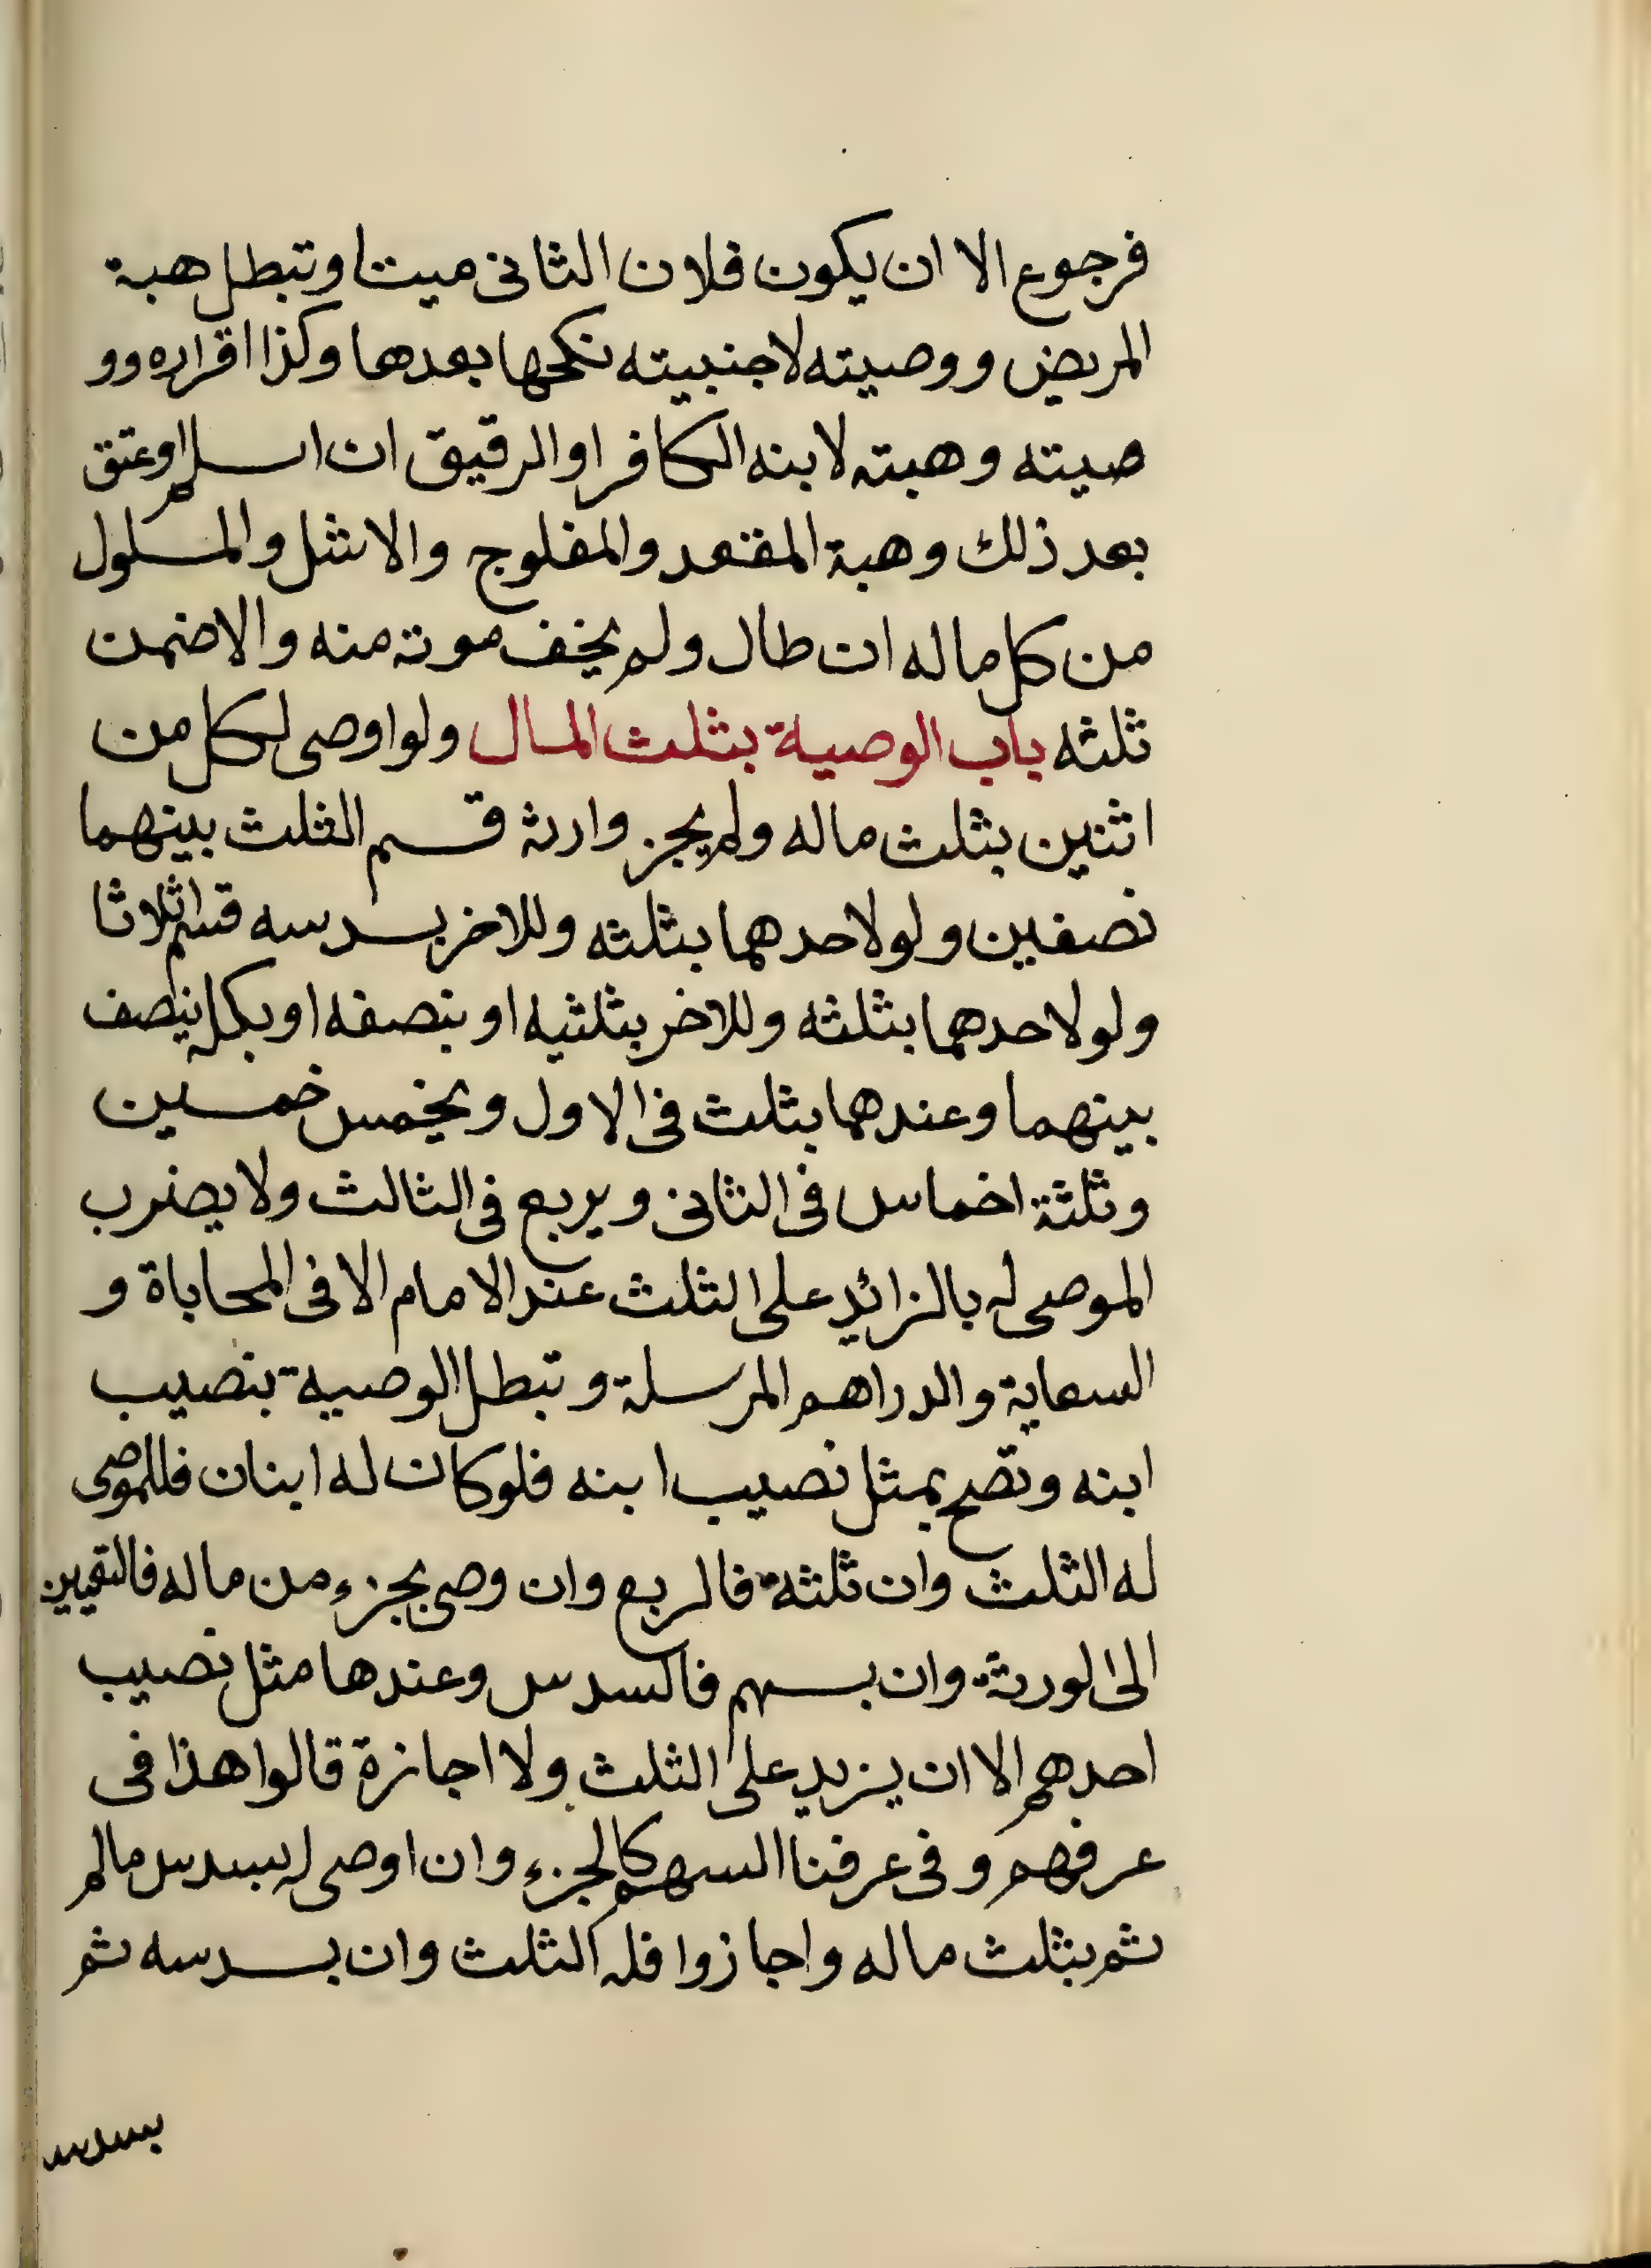 فرجوع الا ان يكون فلان الثانى ميتا وتبطل هبة
المريض ووصيته لاجنبيته نكحها بعدها وكذا اقراره وو
صيته وهبته لابنه الكافر او الرقيق ان اسلم او عتق
بعد ذلك وهبة المقعد والمفلوج والاشل والمسلول
من كل ماله ان طال ولم يخف موته منه والا ضمن
ثلثه باب الوصية بثلث المال ولو اوصى لكل من
اثنين بثلث ماله ولم يجز وارثه قسم الثلث بينهما
نصفين ولو لاحدهما بثلثه وللاخر بسدسه قسم اثلاثا
ولو لاحدهما بثلثه وللاخر بثلثيه او بنصفه او بكله ينصف
بينهما وعندهما بثلث فى الاول ويخمس خمسين
وثلثة اخماس فى الثانى ويربع فى الثالث ولا يضرب
الموصى له بالزائد على الثلث عند الامام الا فى المحاباة و
السعاية والدراهم المرسلة وتبطل الوصية بنصيب
ابنه وتصح بمثل نصيب ابنه فلو كان له ابنان فللموصى
له الثلث وان ثلثة فالربع وان وصى بجزء من ماله فالتعيين
الى الورثة وان بسهم فالسدس وعندها مثل نصيب
احدهم الا ان يزيد على الثلث ولا اجازة قالوا هذا فى
عرفهم وفى عرفنا السهم كالجزء وان اوصى له بسدس ماله
ثم بثلث ماله واجازوا فله الثلث وان بسدسه ثم
بسدسه